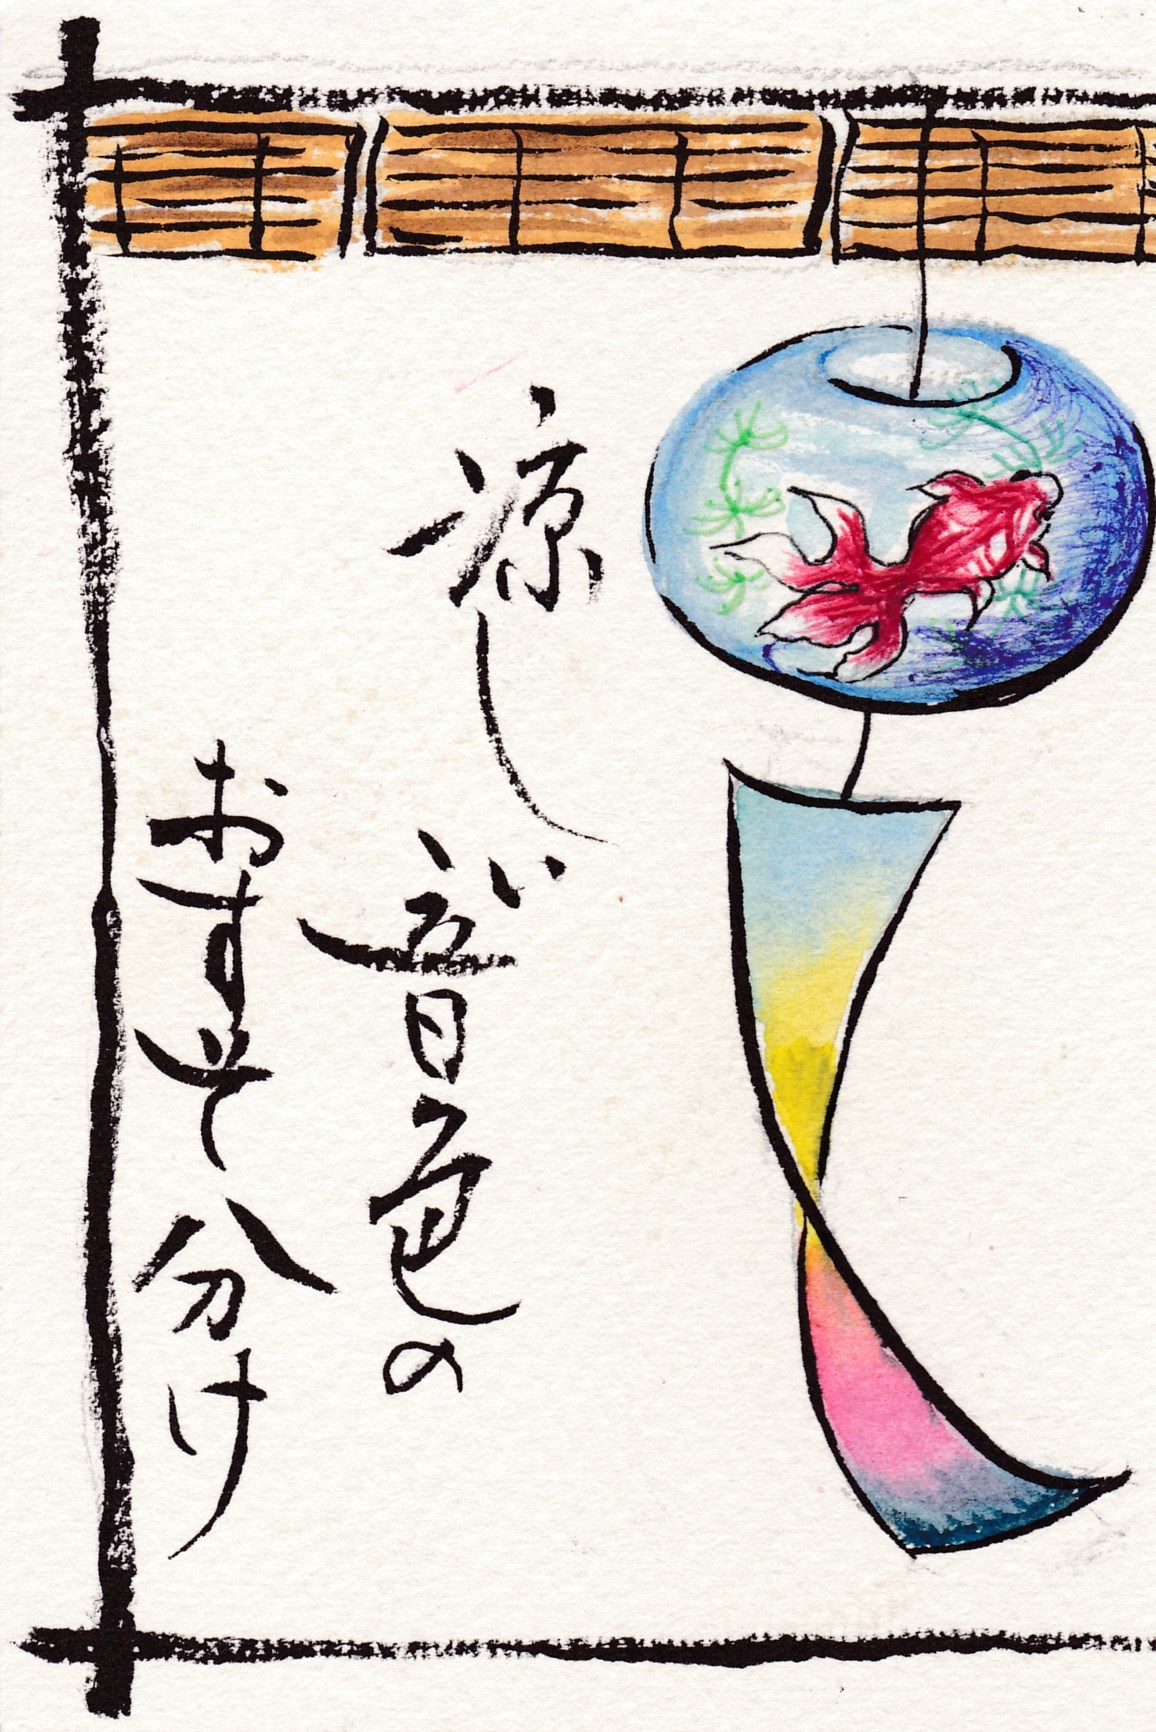 涼しい
音色の
おすそ分け